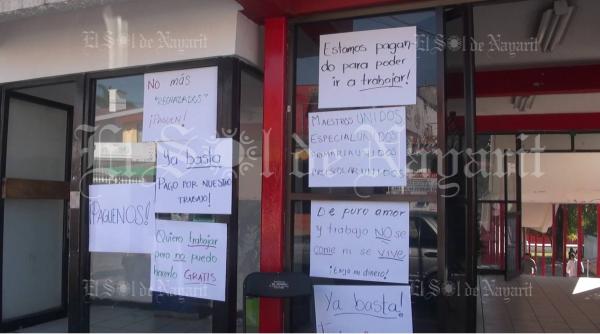 No más
"RECHAZADOS"
¡PAGUEN!
Ya basta
PAGO POR NUESTRO
TRABAJO!
¡PAGUENOS!
Quiero trabajar
pero no puedo
hacerlo GRATIS
Estamos pagan-
do para poder
ir a trabajar!
MAESTROS UNIDOS
ESPECIAL UNIDOS
PRIMARIA UNIDOS
PREESCOLAR UNIDOS
De puro amor
y trabajo NO se
come ni se vive
¡Exijo mi dinero!
Ya basta!
El Sol de Nayarit
El Sol de Nayarit
El Sol de Nayarit
El Sol de Nayarit
El Sol de Nayarit